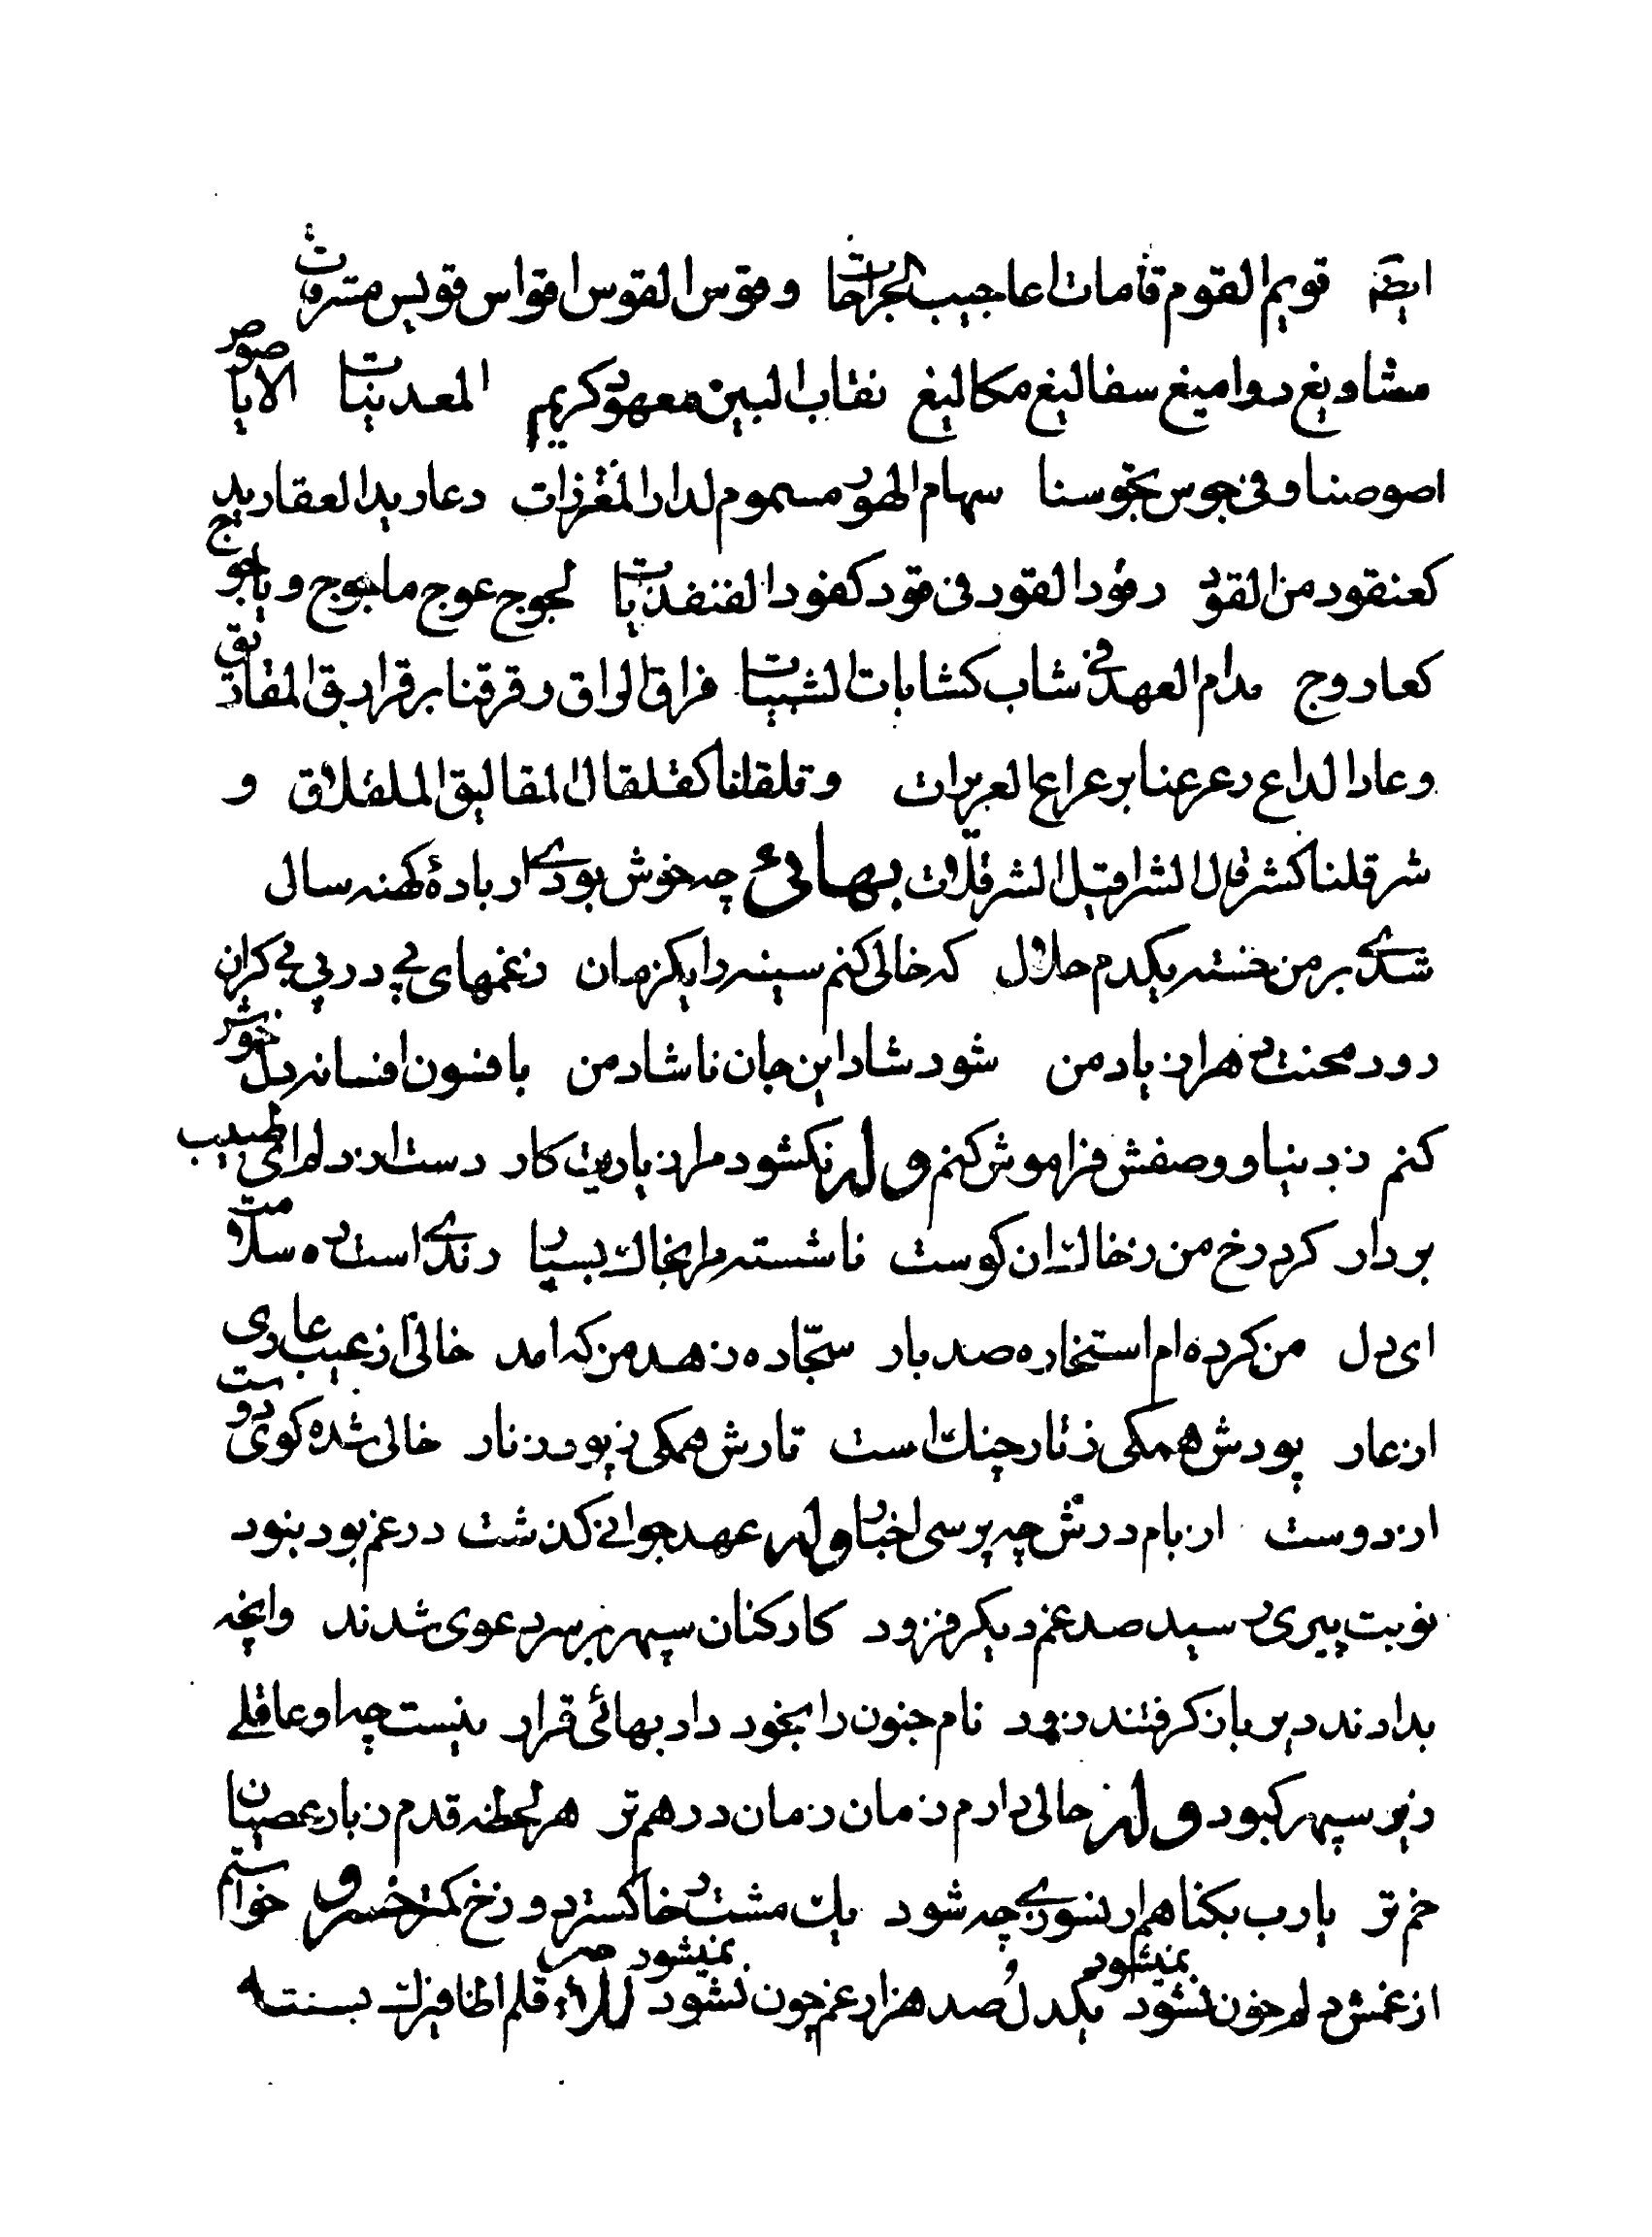 ایضا قویم القوم قامات اعاجیب الجراحات و قوس القوس اقواس قویس مشرقات
مشاویغ دوامیغ سفالیغ مکالیغ نقاب البین معهود کریم المعدنیات الایا صوص
اصوصنا و فی جوس بخوسنا سهام الهود مسموم لدار المغرزات دعارید العقارید
کعنقود من القود رقود القود فی قود کفود القنفذیات لجوج عوج ماجوج و یاجوج
کعاروج مدام العهد فی شاب کشابات الشبیبات فراق الواق رقرقنا برقراریق المفاتق
وعار الداع رعرعنا برعراع العریرات و تلقلنا کقلقال المقالیق الملقلاق و
شرقلنا کشرقال الشراقیل الشرقلات بهائی چه خوش بودی ار بادهٔ کهنه سال
شدی بر من خسته یکدم حلال که خالی کنم سینه را یکزمان زغمهای پی در پی بی کران
رود محنت هر از یاد من شود شاد این جان ناشاد من با فسون افسانه دل خوش
کنم ز دنیا و وصفش فراموش کنم وله نکشود مرا ز یاریت کار دست از دلم ای طبیب
بردار کرد رخ من ز خاک ان کوست ناشسته مرا بخاک بسپار رندی است ره سلامت
ای دل من کرده ام استخاره صد بار سجّاده زهد من که امد خالی از عیب عاری
از عار پودش همکی ز تار چنك است تارش همکی ز پود زنار خالی شده کوی دوست
از دوست از بام و درش چه پرسی اخبار وله عهد جوانی کذشت در غم بود نبود
نوبت پیری رسید صد غم دیکر فزود کارکنان سپهر بر سر دعوی شدند وانچه
بدادند دیر باز کرفتند زود نام جنون را بخود داد بهائی قرار نیست چه او عاقلے
زیر سپهر کبود وله حالی دارم زمان زمان در هم تر هر لحظه قدم ز بار عصیان
خم تر یارب بکناهم ار بسوزی چه شود یك مشت خاکستر دوزخ کمتر خسرو خواستم
از غمش دلم خون نشود نمیشود یکدل و صد هزار غم چون نشود نمیشود قلم الظافیرك بسنته